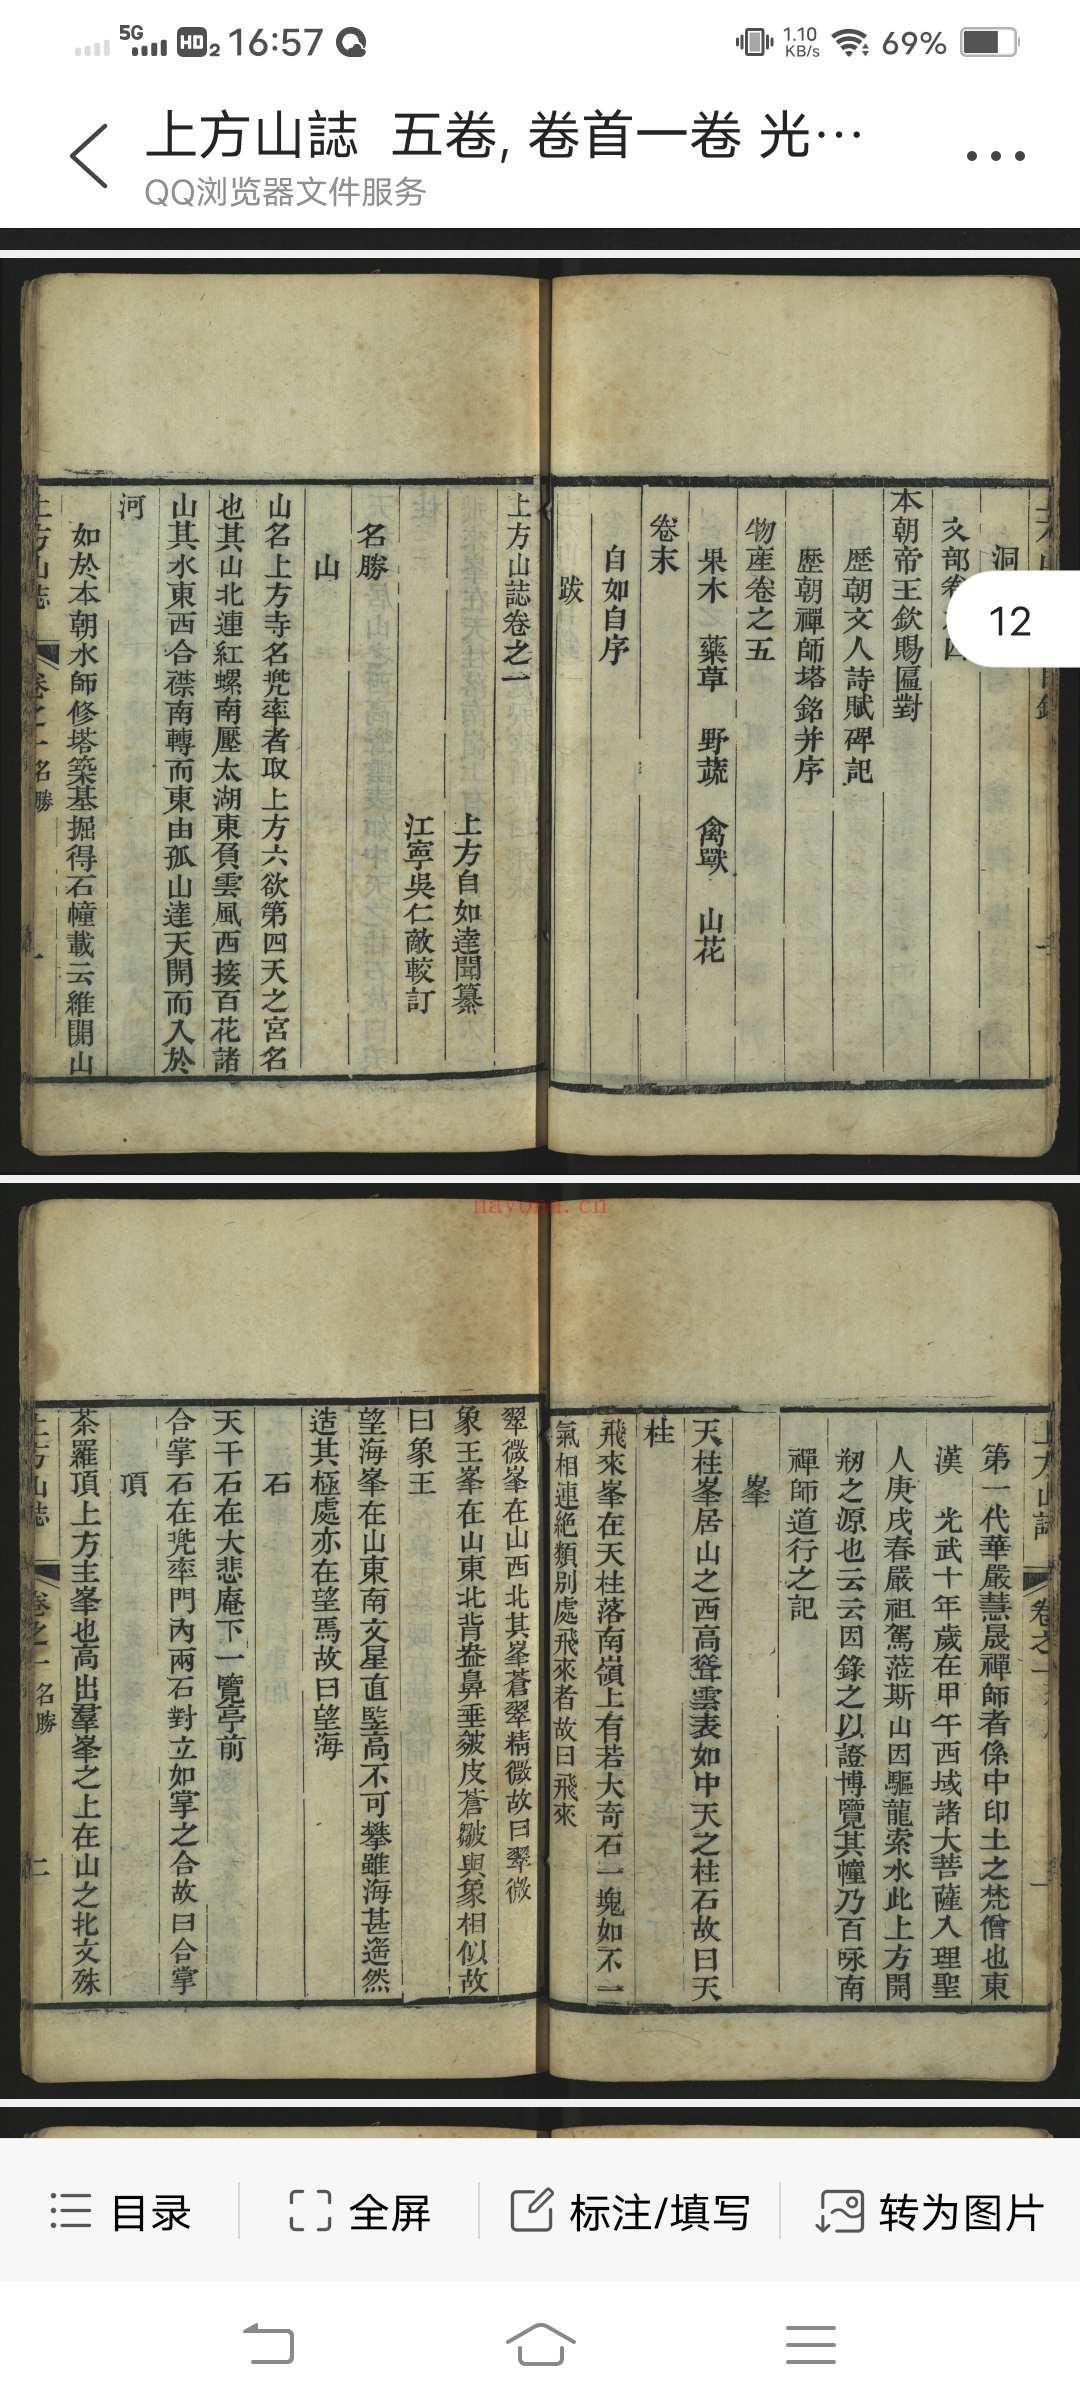 5G HD 2 16:57 1.10 KB/s 69%
上方山誌 五卷, 卷首一卷 光…
QQ浏览器文件服务
12
洞
文部卷
本朝帝王欽賜匾對
歷朝文人詩賦碑記
歷朝禪師塔銘并序
物産卷之五
果木 藥草 野蔬 禽獸 山花
卷末
自如自序
跋
上方山誌卷之一
上方自如達聞纂
江寧吳仁敵較訂
名勝
山
山名上方寺名兠率者取上方六欲第四天之宮名
也其山北連紅螺南壓太湖東負雲風西接百花諸
山其水東西合襟南轉而東由孤山達天開而入於
河
如於本朝水師修塔築基掘得石幢載云維開山
上方山誌 卷之一 名勝 一
nayona.cn
上方山誌 卷之一
第一代華嚴慧晟禪師者係中印土之梵僧也東
漢 光武十年歲在甲午西域諸大菩薩入理聖
人庚戌春嚴祖駕蒞斯山因驅龍索水此上方開
刱之源也云云因錄之以證博覽其幢乃百咏南
禪師道行之記
峯
天柱峯居山之西高聳雲表如中天之柱石故曰天
柱
飛來峯在天柱落南嶺上有若大奇石一塊如不一
氣相連絶類別處飛來者故曰飛來
翠微峯在山西北其峯蒼翠精微故曰翠微
象王峯在山東北背益鼻垂皴皮蒼皺與象相似故
曰象王
望海峯在山東南文星直監高不可攀雖海甚遥然
造其極處亦在望焉故曰望海
石
天干石在大悲庵下一覽亭前
合掌石在兠率門內兩石對立如掌之合故曰合掌
頂
茶羅頂上方主峯也高出羣峯之上在山之北文殊
上方山誌 卷之一 名勝 二
目录
全屏
标注/填写
转为图片